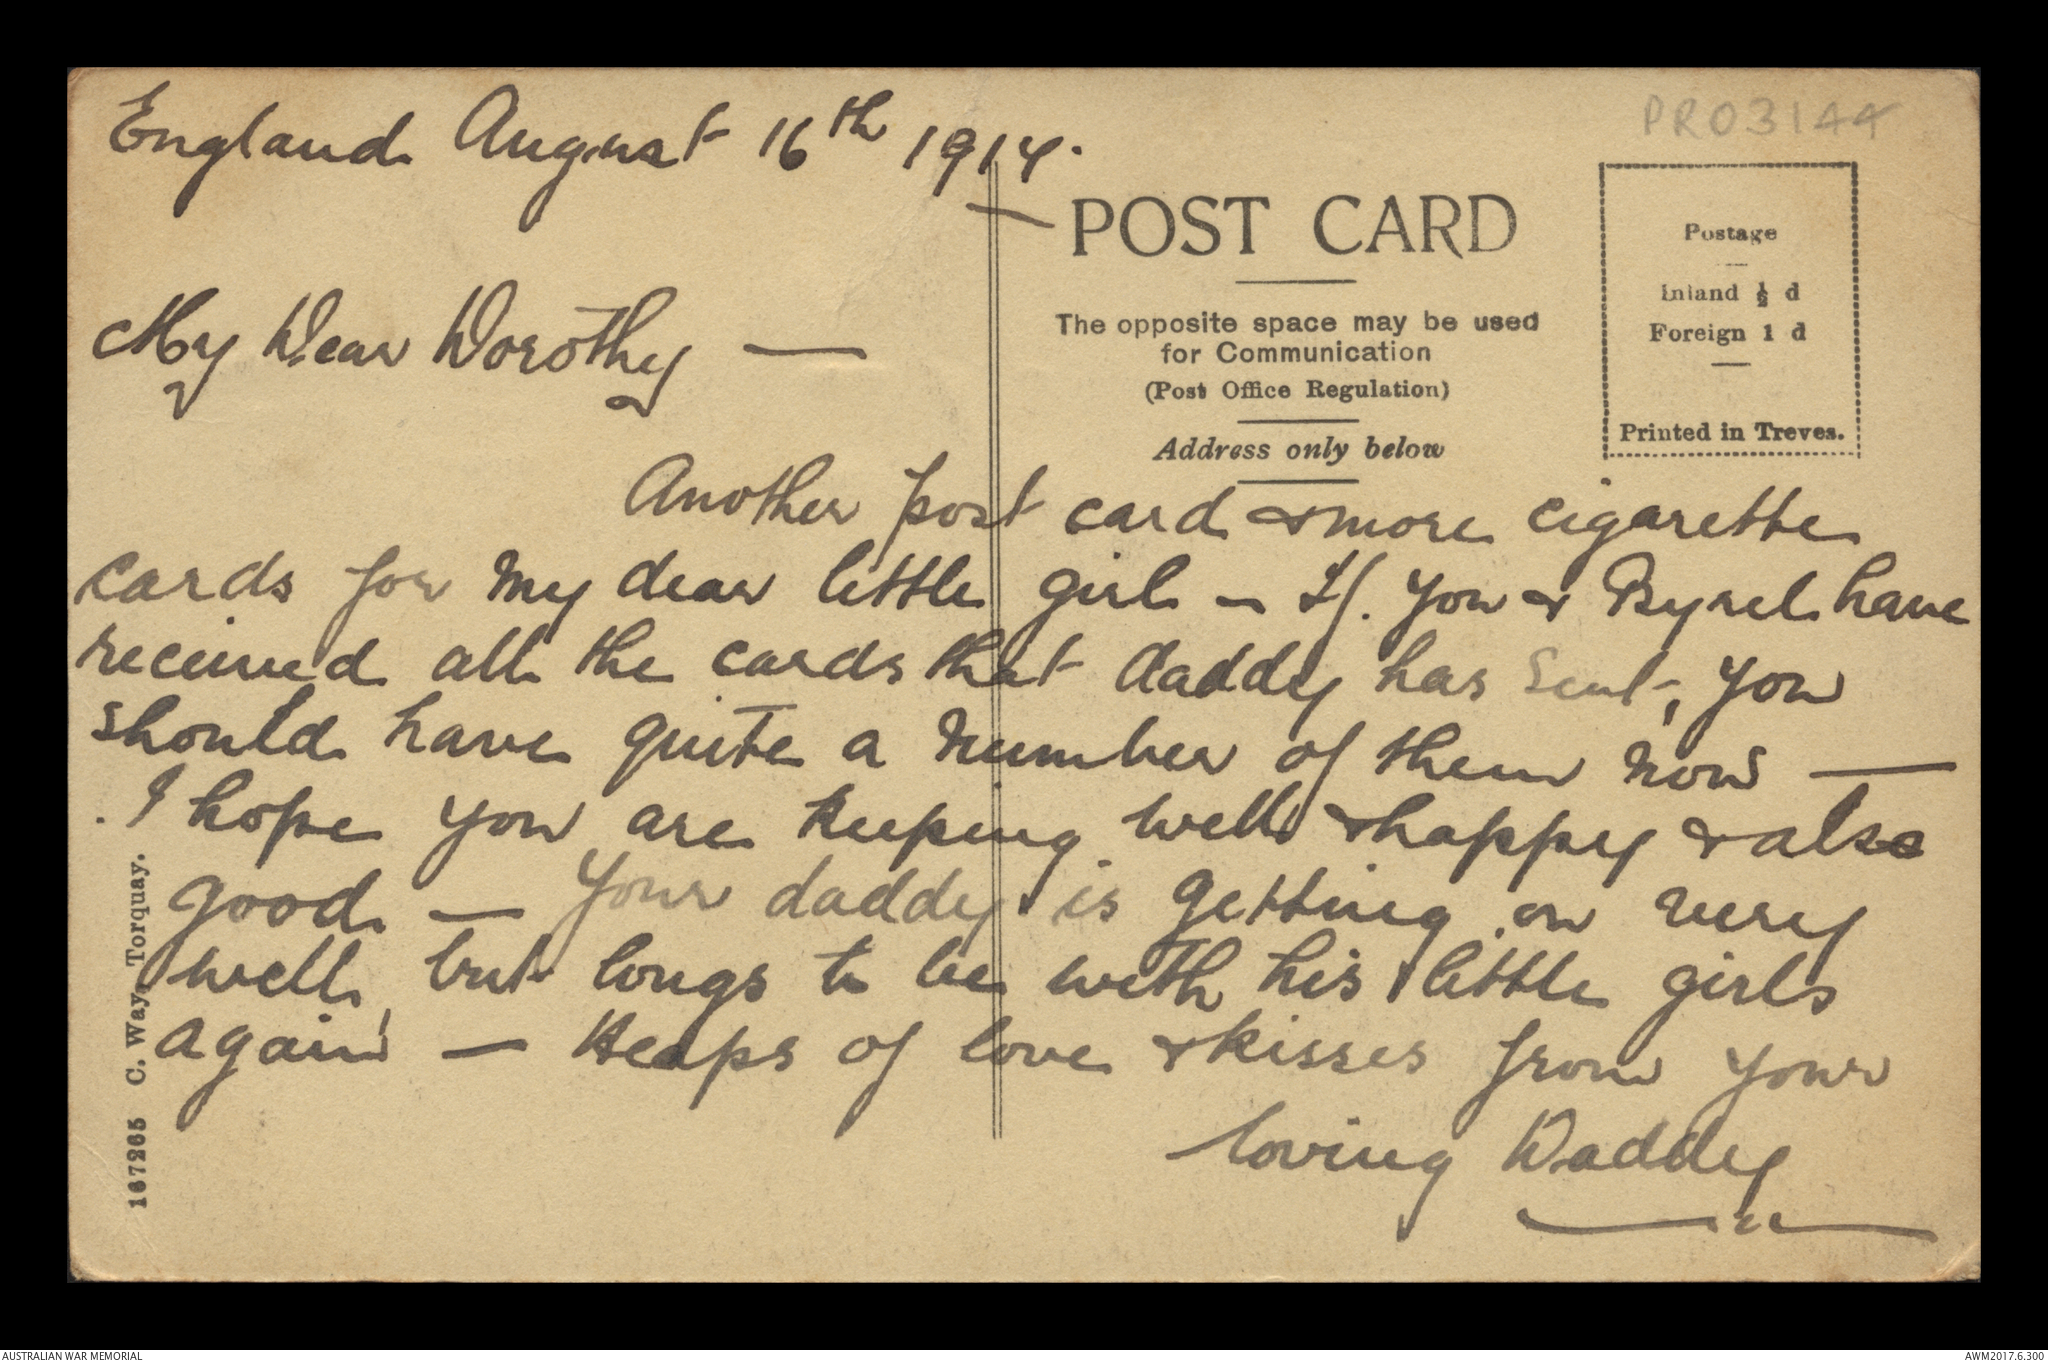 England August 16th 1917.
PR03144
POST CARD
The opposite space may be used
for Communication
(Post Office Regulation)
Address only below
Postage
Inland ½ d
Foreign 1 d
Printed in Treves.
My Dear Dorothy —
Another post card & more cigarette
cards for my dear little girl — If you & Byrel have
received all the cards that daddy has sent, you
should have quite a number of them now —
I hope you are keeping well & happy & also
good — Your daddy is getting on very
well, but longs to be with his little girls
again — Heaps of love & kisses from your
loving Daddy
167265 C. Way, Torquay.
AUSTRALIAN WAR MEMORIAL
AWM2017.6.300